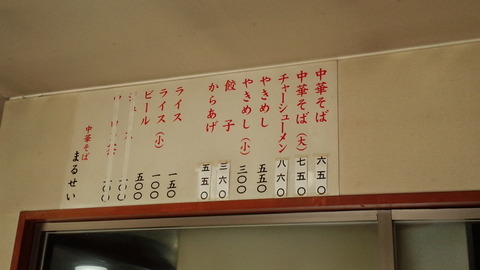 中華そば 六五〇
中華そば(大) 七五〇
チャーシューメン 八六〇
やきめし 五五〇
やきめし(小) 三〇〇
餃子 三六〇
からあげ 五五〇
ライス 一五〇
ライス(小) 一〇〇
ビール 五〇〇
一〇〇
一〇〇
中華そば まるせい